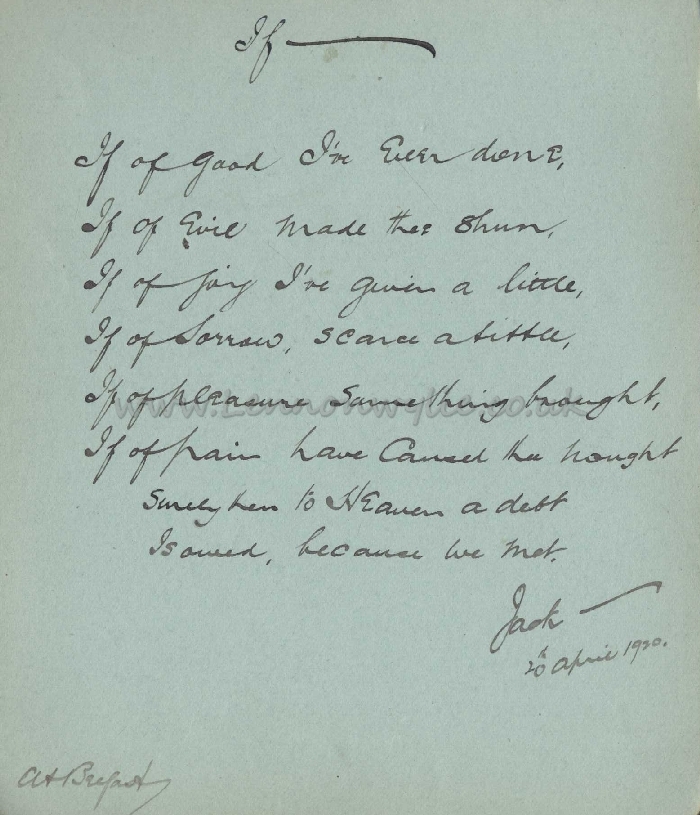 If ———
If of Good I've Ever done,
If of Evil made thee shun,
If of joy I've given a little,
If of Sorrow, scarce a tittle,
If of pleasure something brought,
www.Lennonwylie.co.uk
If of pain have Caused thee nought
Surely then to Heaven a debt
Is owed, because we met.
Jack —
20th April 1920.
At Belfast